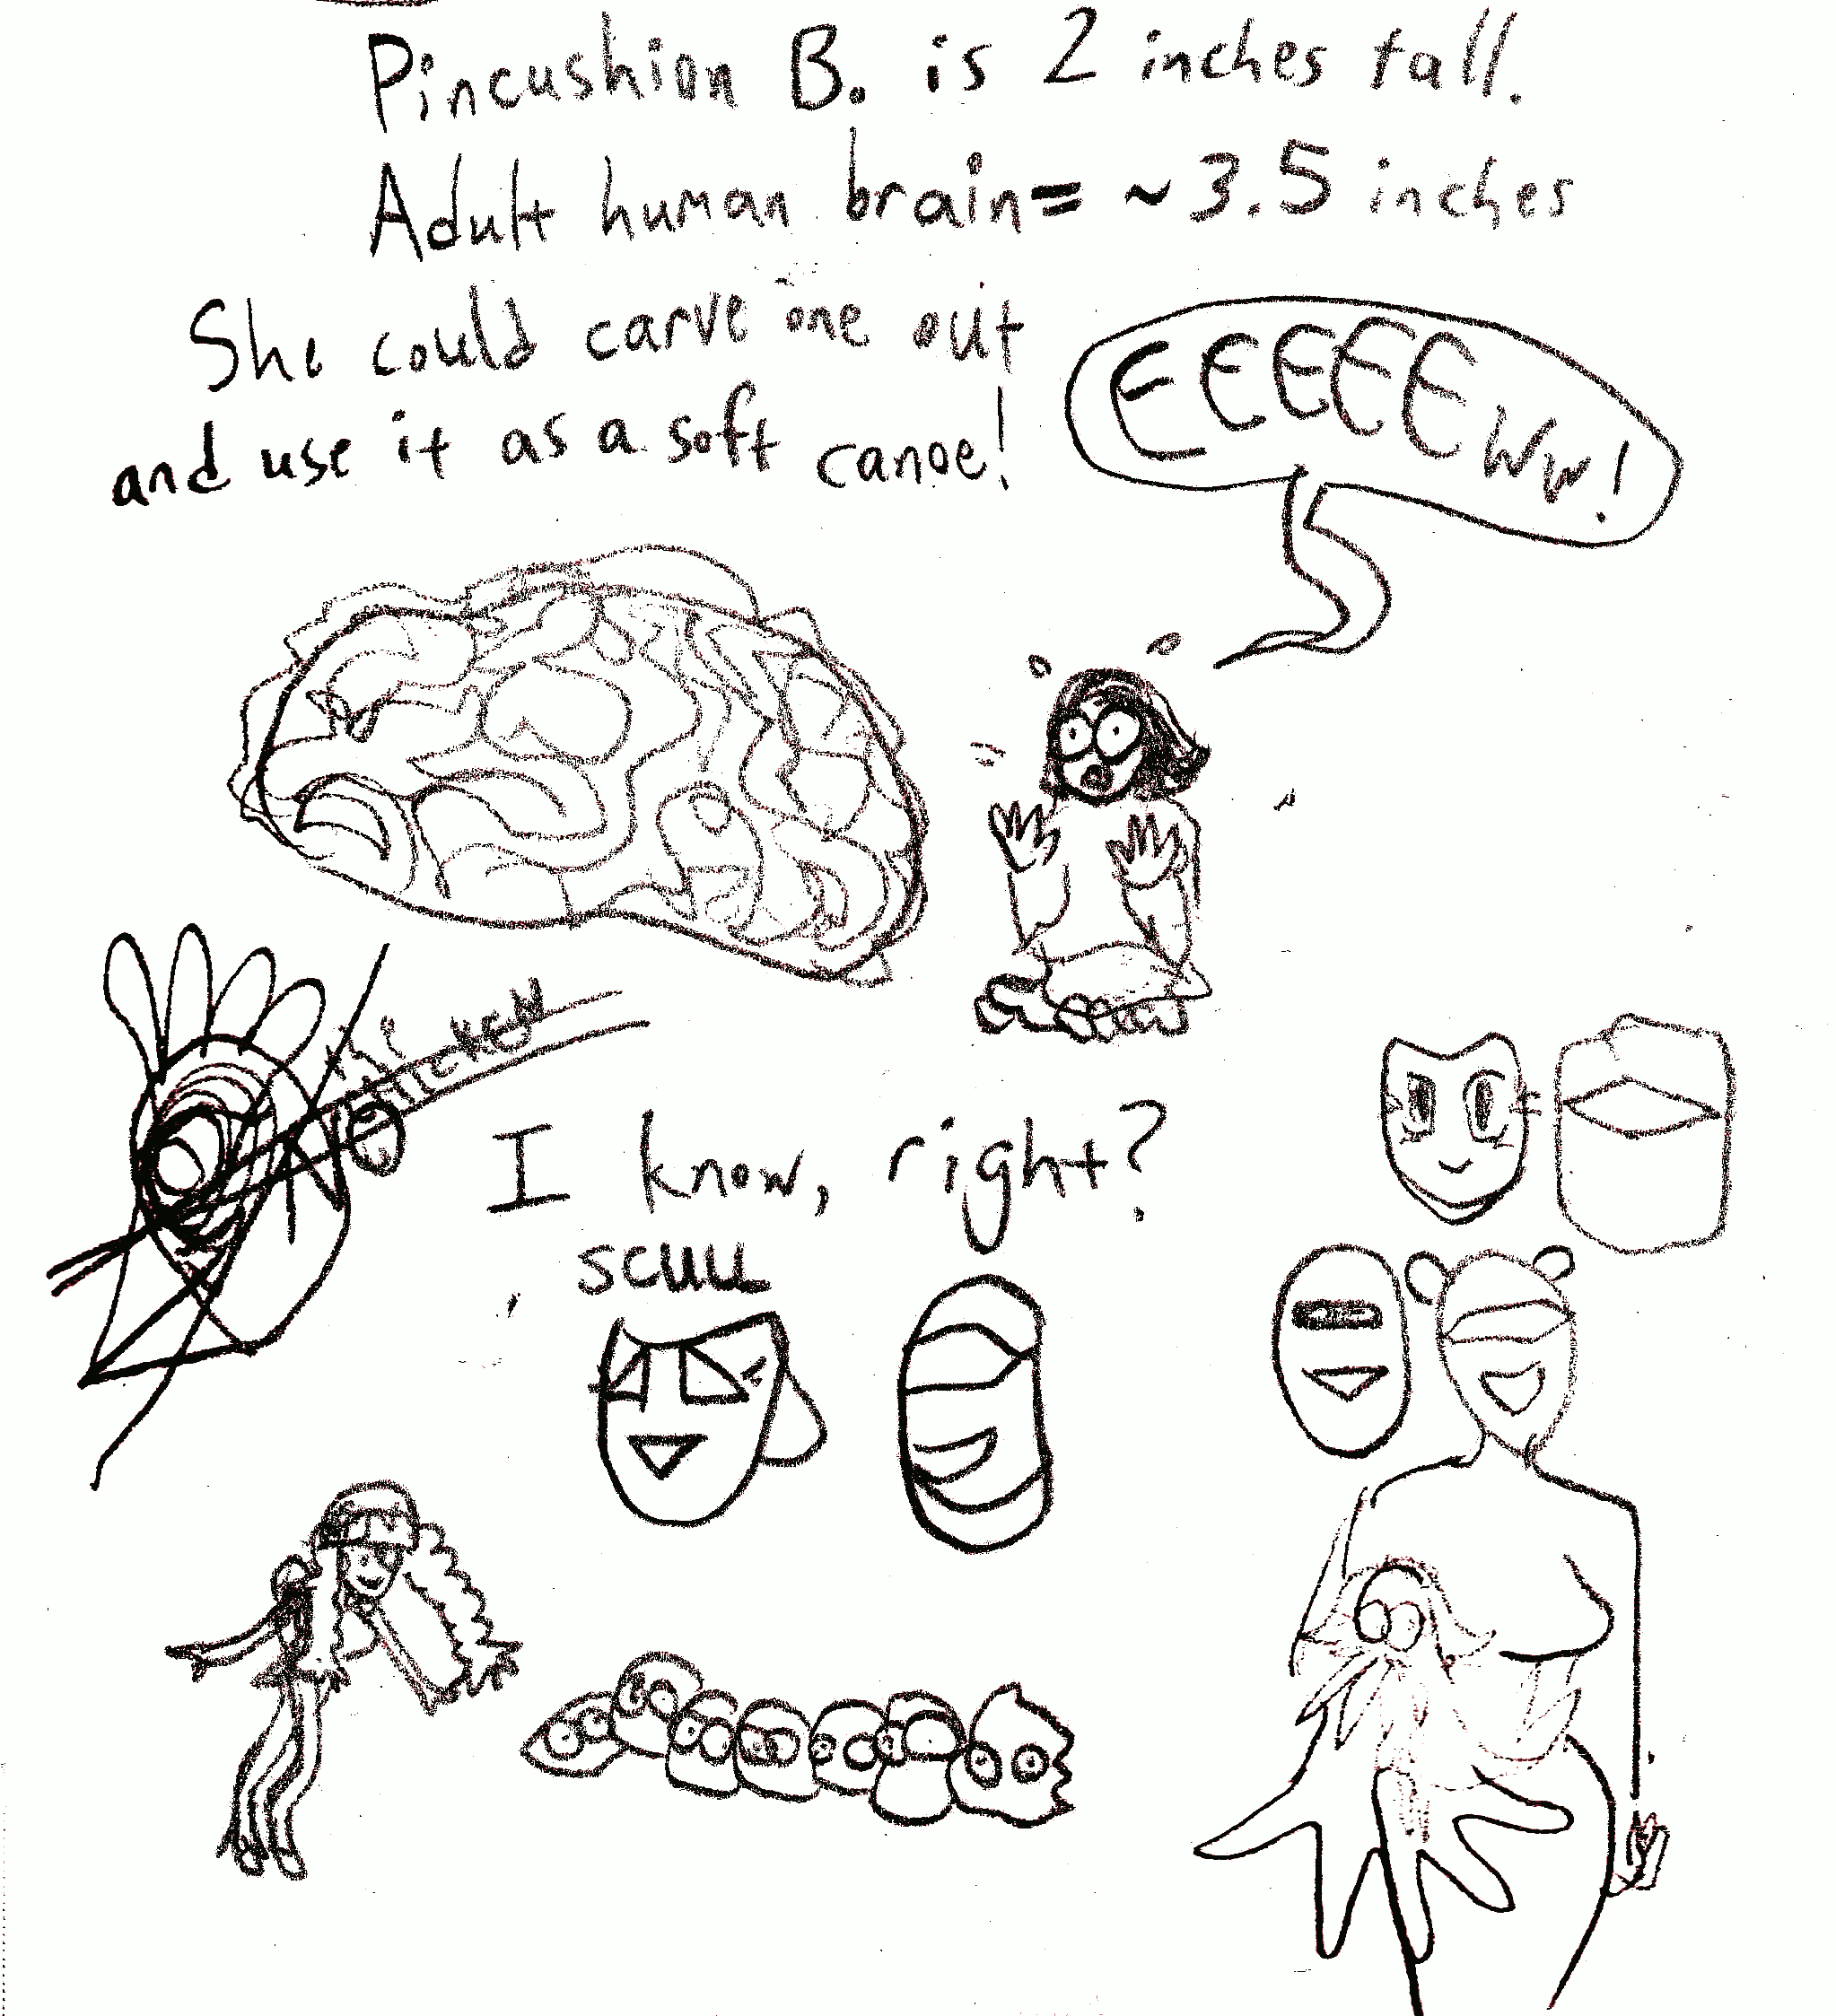 Pincushion B. is 2 inches tall.
Adult human brain= ~3.5 inches
She could carve one out
and use it as a soft canoe!
EEEEEww!
I know, right?